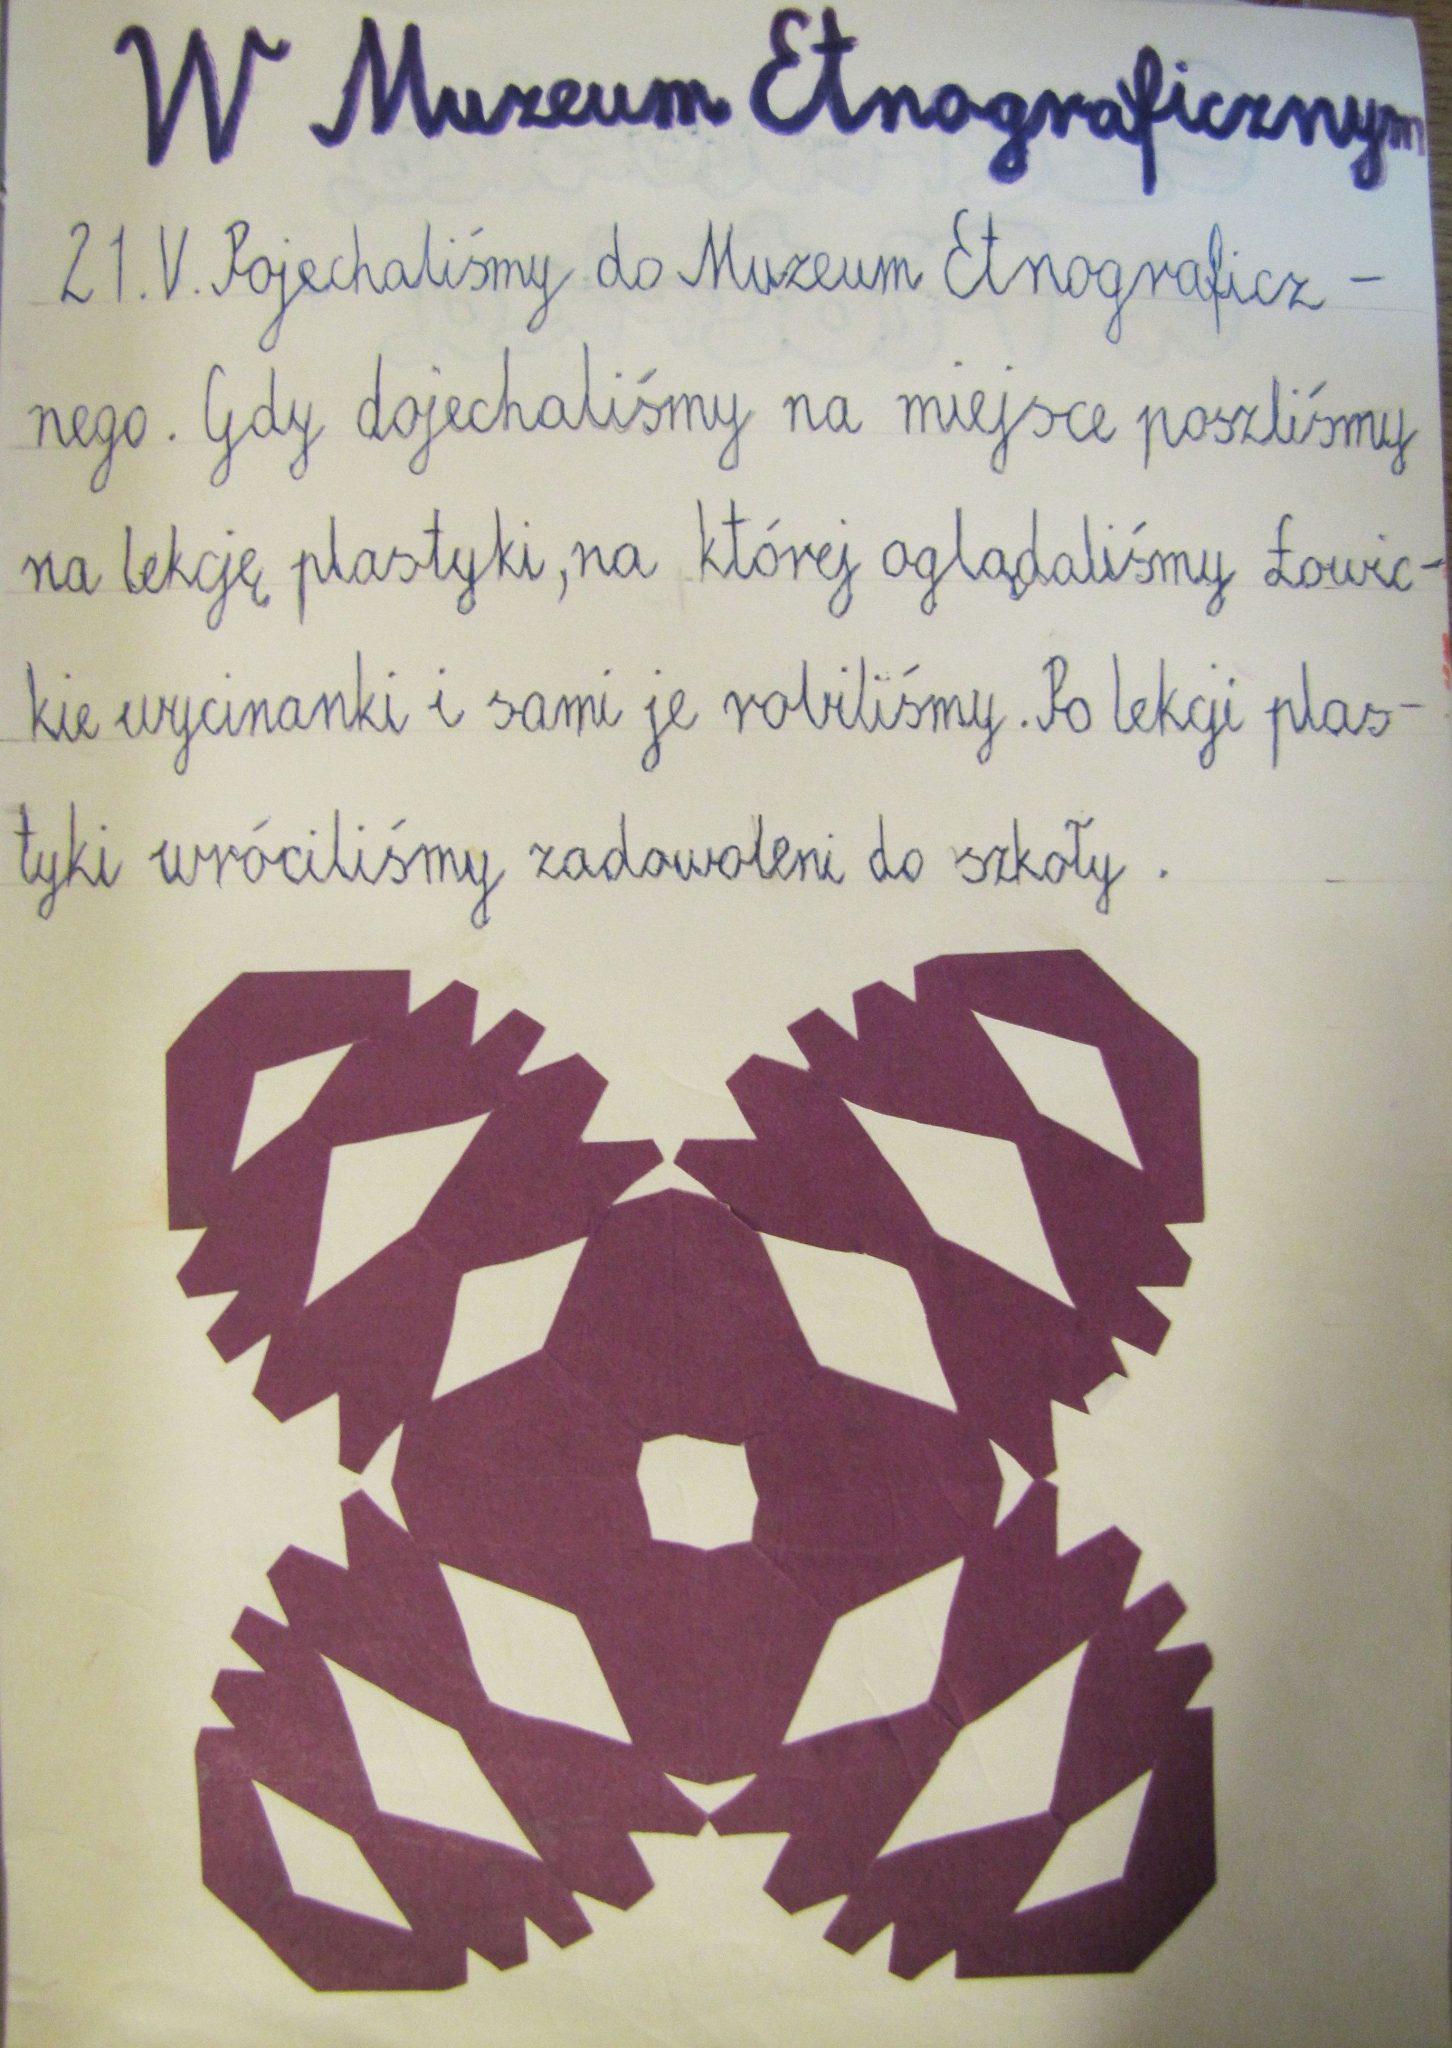 W Muzeum Etnograficznym
21.V. Pojechaliśmy do Muzeum Etnograficz-
nego. Gdy dojechaliśmy na miejsce poszliśmy
na lekcję plastyki, na której oglądaliśmy Łowic-
kie wycinanki i sami je robiliśmy. Po lekcji plas-
tyki wróciliśmy zadowoleni do szkoły.